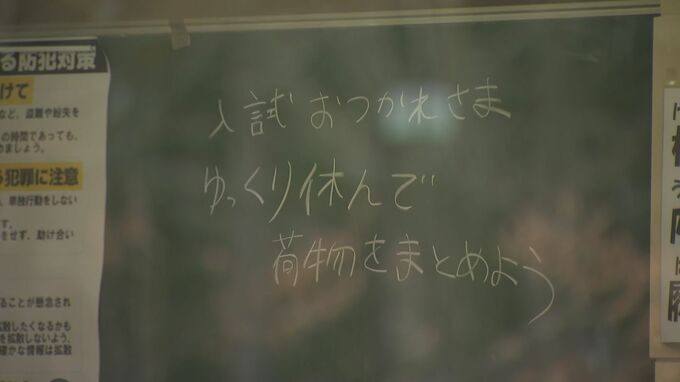 る防犯対策
けて
など、盗難や紛失を
の時間であっても、
めましょう。
犯罪に注意
、単独行動をしない
す。
をせず、助け合い
ることが懸念され
拡散したくなるかも
を拡散しないよう、
確かな情報は拡散
入試おつかれさま
ゆっくり休んで
荷物をまとめよう